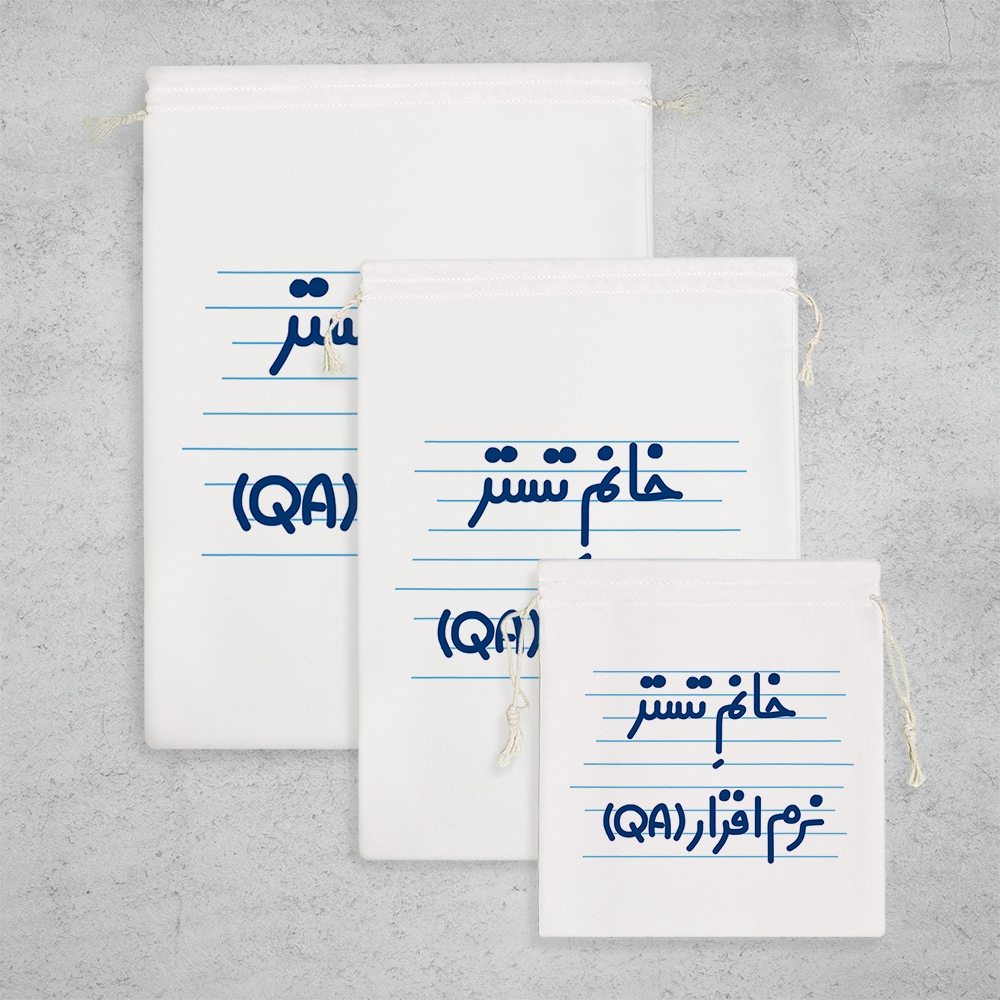 ستر
(QA)
خانمِ تستر
(QA)
خانمِ تستر
نرم افزار (QA)